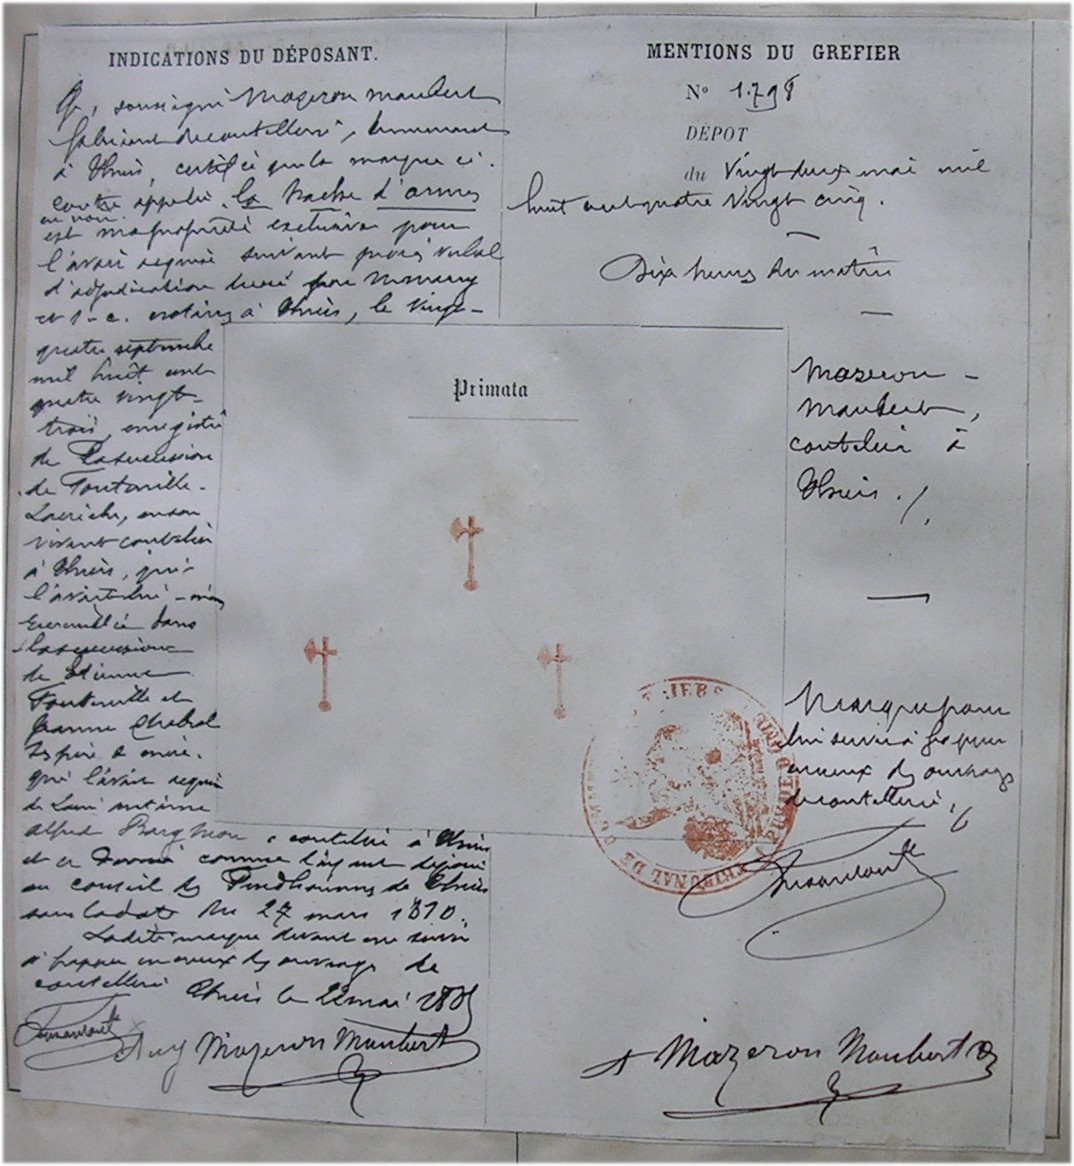 INDICATIONS DU DÉPOSANT.
Je, soussigné Mazeron Maubert
fabricant de coutellerie, demeurant
à Thiers, certifie que la marque ci-
contre appelée la hache d'armes
en noir
est ma propriété exclusive pour
l'avoir acquise suivant procès verbal
d'adjudication dressé par
notaires à Thiers, le vingt-
quatre septembre
mil huit cent
quatre vingt-
trois, enregistré
de la succession
de Fontenille-
en son
vivant coutelier
à Thiers, qui
l'avait
recueillie dans
la succession
de Etienne
Fontenille et
Jeanne Chabrol
ses père & mère.
qui l'avait acquise
de
alfred coutelier à Thiers
et
au conseil des Prudhommes de Thiers
sous la date du 27 mars 1810.
Ladite marque devant me servir
à frapper en creux des ouvrages de
coutellerie Thiers le 22 mai 1885
Mazeron Maubert
MENTIONS DU GREFIER
N° 1.798
DÉPOT
du Vingt deux mai mil
huit cent quatre vingt cinq.
Dix heures du matin
Primata
Mazeron -
Maubert,
coutelier à
Thiers.
Marque pour
lui servir à frapper
en creux des ouvrages
de coutellerie.
TRIBUNAL DE COMMERCE THIERS PUY DE DOME
Mazeron Maubert